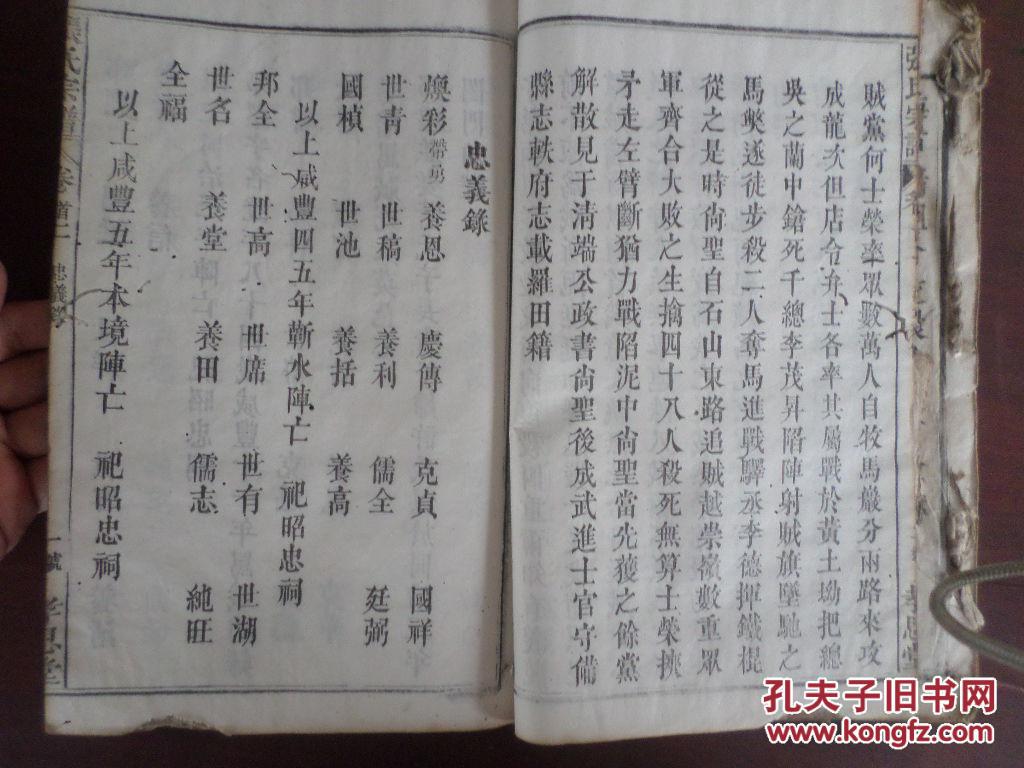 賊黨何士榮率眾數萬人自牧馬巖分兩路來攻
成龍次但店令弁士各率其屬戰於黃土坳把總
吳之蘭中鎗死千總李茂昇陷陣射賊旗墜馳之
馬奬遂徒步殺二人奪馬進戰驛丞李德揮鐵棍
從之是時尚聖自石山東路追賊越崇嶺數重眾
軍齊合大敗之生擒四十八人殺死無算士榮挾
矛走左臂斷猶力戰陷泥中尚聖當先獲之餘黨
解散見于清端公政書尚聖後成武進士官守備
縣志軼府志載羅田籍
忠義錄
煥彩 帶勇 養恩 慶傳 克貞 國祥
世青 世稿 養利 儒全 廷弼
國楨 世池 養括 養高
以上咸豐四五年蘄水陣亡 祀昭忠祠
邦全 世高 世席 世有 世湖
世名 養堂 養田 儒志 純旺
全福
以上咸豐五年本境陣亡 祀昭忠祠
張氏宗譜 卷首二 忠義錄 孝思堂
孔夫子旧书网
WWW.KONGFZ.COM